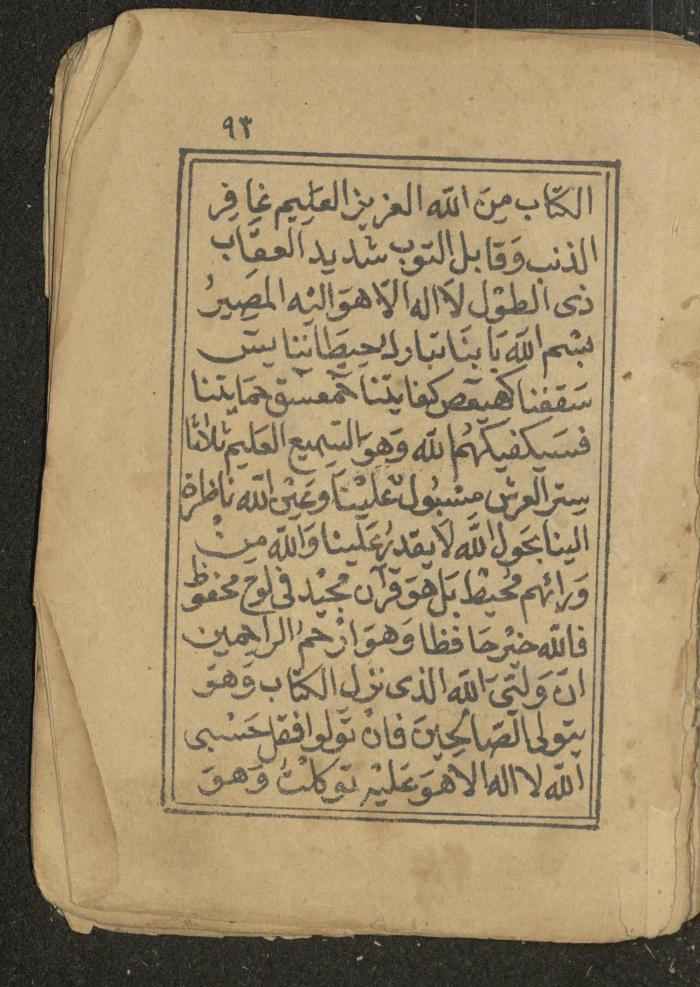 ٩٣
الكتاب مِنَ اللّه العزيز العَلِيم غافِر
الذنب وَقابل التوب شديد العقاب
ذى الطوْل لَا اله الّا هوَ اليْه المصِيرُ
بسْم اللّهِ بَابنَا تبارك حِيطاننا يسَ
سَقفنا كهيعص كفايتنا حمعسق حمَايتنا
فسَيكفيكهُم اللّه وَهوَ السَميع العَليم ثلاثًا
سِتر العَرش مسْبُول عَليْنا وعَيْن اللّه ناظرة
الينا بحَول اللّه لَا يقدرُ عَلينا وَاللّه مِنْ
وَرائهم محُيط بَل هوَ قرآن مجيْد فى لوح محفوظ
فاللّه خيْر حَافظا وَهوَ ارْحَمُ الراحمين
انّ وَليّىَ اللّه الذى نزل الكتاب وَهوَ
يتولى الصّالحِينَ فانْ تَولوا فقل حَسْبى
اللّه لا اله الّا هوَ عَليْهِ توكلْتُ وَهوَ